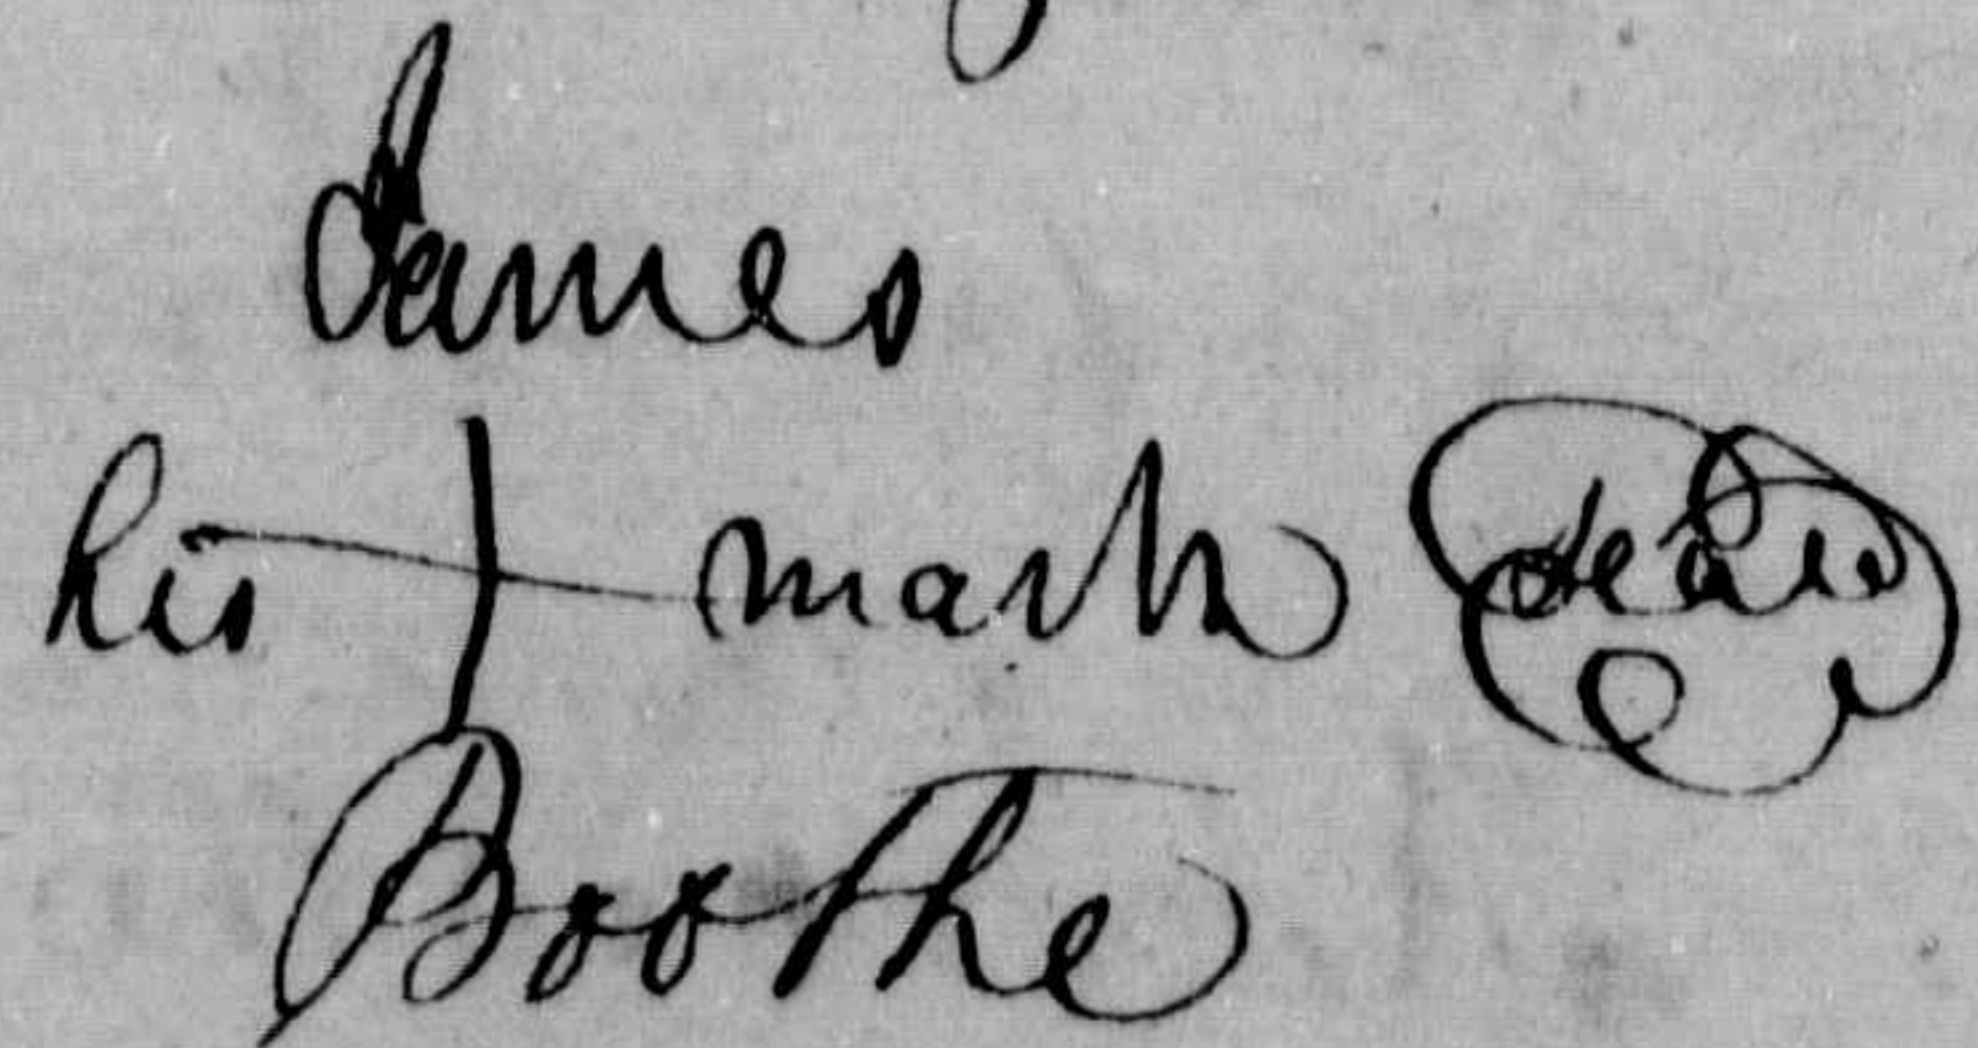 James
his + mark seal
Boothe